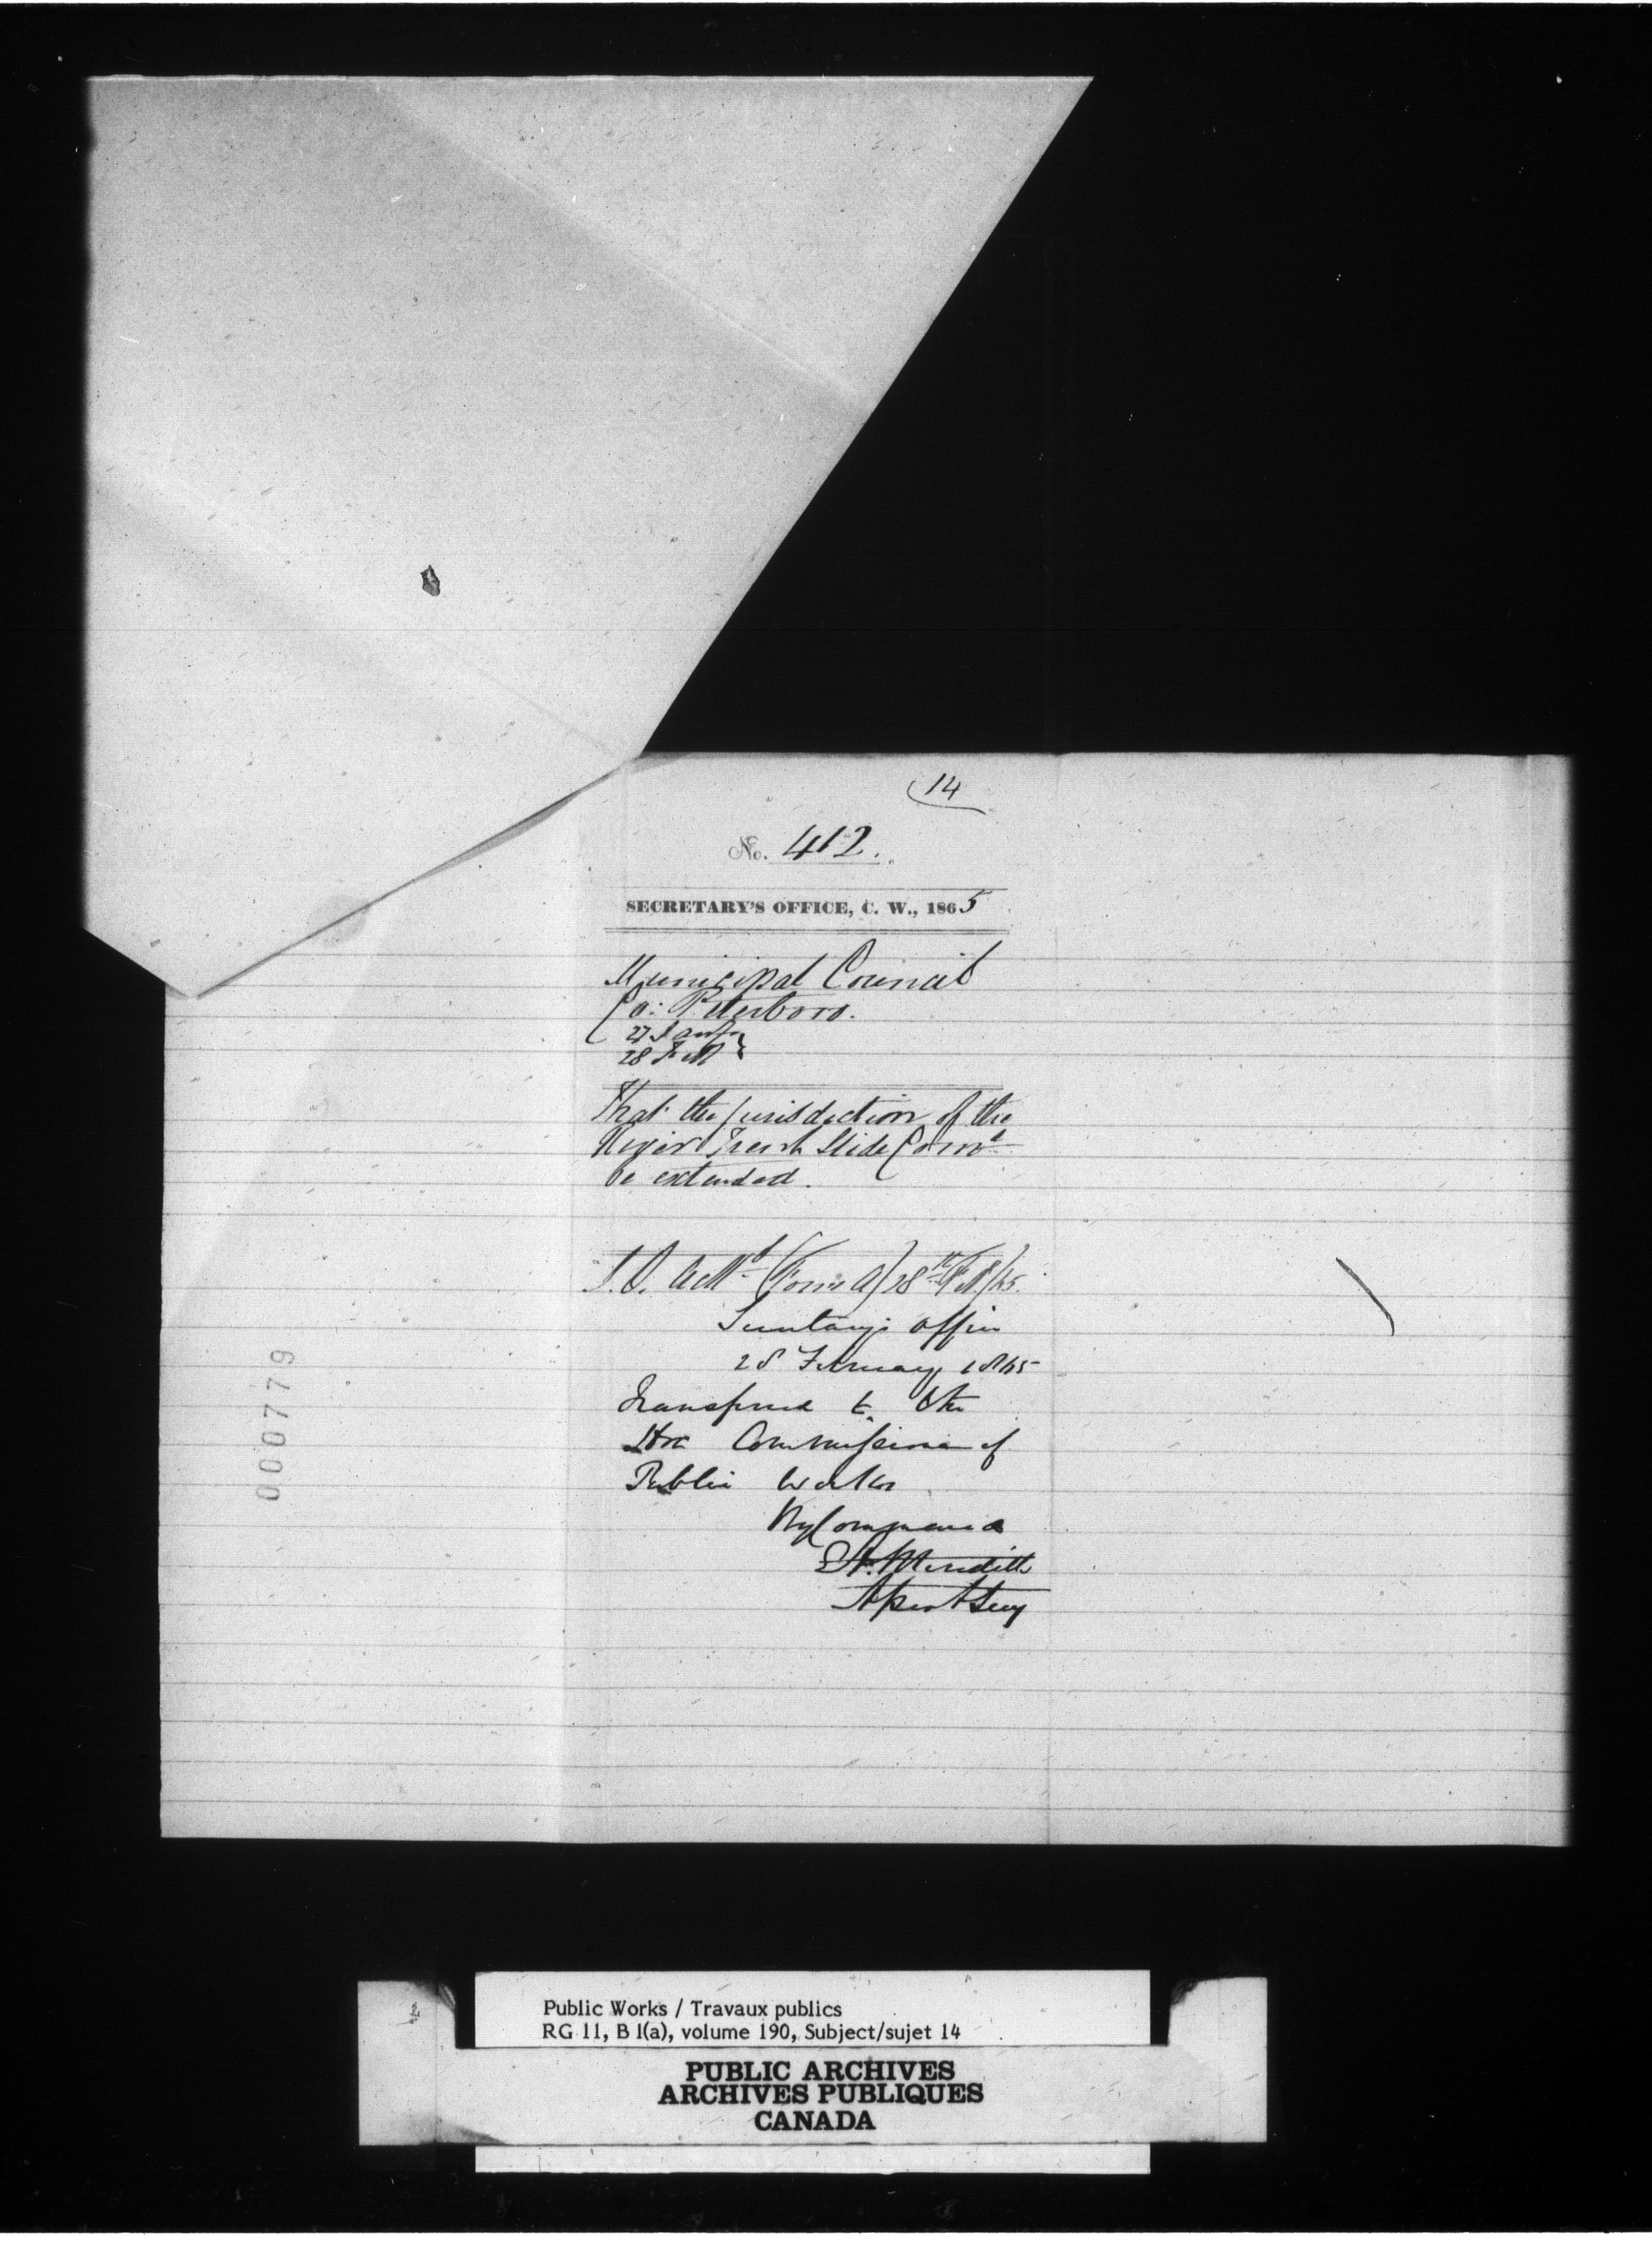 14
No. 412.
SECRETARY'S OFFICE, C. W., 1865
Municipal Council
Co: Peterboro.
27 Jany
28 Feb
That the jurisdiction of the
River Trent Slide Comrs
be extended.
28th Feb/65.
Secretary's Office
28 February 1865
Transferred to the
Hon Commissioner of
Public Works
By Command
E A Meredith
Asst Secy
000779
Public Works / Travaux publics
RG 11, B 1(a), volume 190, Subject/sujet 14
PUBLIC ARCHIVES
ARCHIVES PUBLIQUES
CANADA